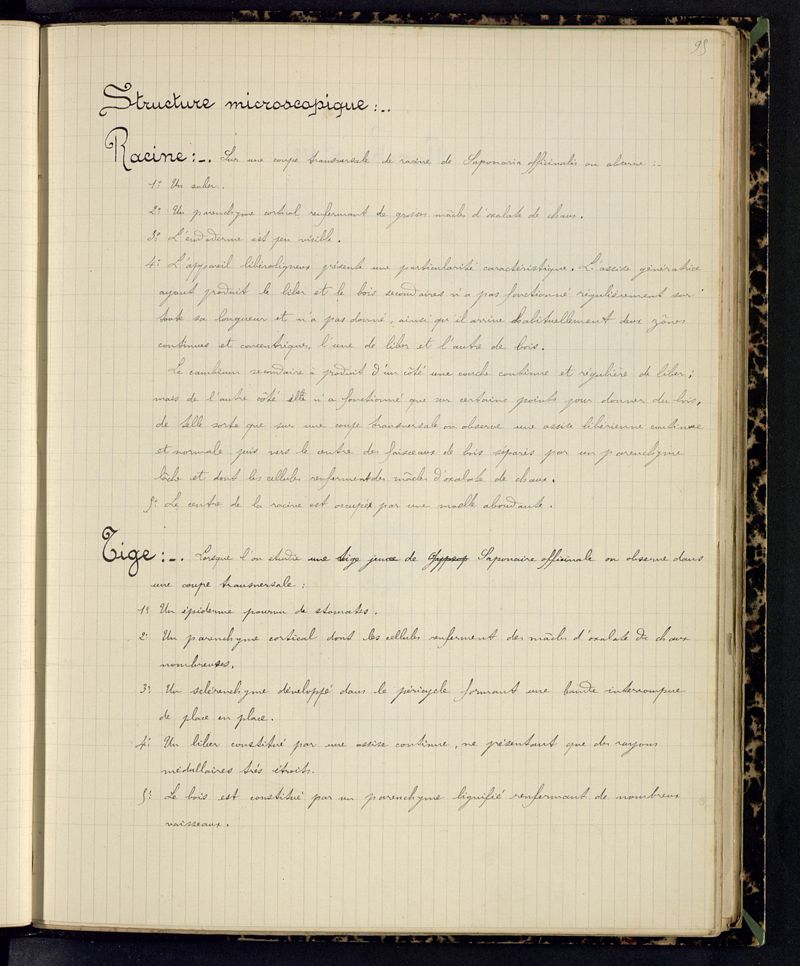 95
Structure microscopique :-.
Racine :-. Sur une coupe transversale de racine de Saponaria officinalis on observe :-
1º Un suber.
2º Un parenchyme cortical renfermant de grosses mâcles d'oxalate de chaux.
3º L'endoderme est peu visible.
4º L'appareil libéroligneux présente une particularité caractéristique. L'assise génératrice
ayant produit le liber et le bois secondaires n'a pas fonctionné régulièrement sur
toute sa longueur et n'a pas donné, ainsi qu'il arrive habituellement deux zônes
continues et concentriques, l'une de liber et l'autre de bois.
Le cambium secondaire à produit d'un côté une couche continue et régulière de liber ;
mais de l'autre côté elle n'a fonctionné que sur certains points pour donner du bois,
de telle sorte que sur une coupe transversale on observe une assise libérienne continue
et normale puis vers le centre des faisceaux de bois séparés par un parenchyme
lâche et dont les cellules renferment des mâcles d'oxalate de chaux.
5º Le centre de la racine est occupée par une moelle abondante.
Tige :-. Lorsque l'on étudie une tige jeune de Gypsop Saponaire officinale on observe dans
une coupe transversale :
1º Un épiderme pourvu de stomates.
2º Un parenchyme cortical dont les cellules renferment des mâcles d'oxalate de chaux
nombreuses.
3º Un sclérenchyme développé dans le péricycle formant une bande interrompue
de place en place.
4º Un liber constitué par une assise continue, ne présentant que des rayons
médullaires trés étroits.
5º Le bois est constitué par un parenchyme lignifié renfermant de nombreux
vaisseaux.